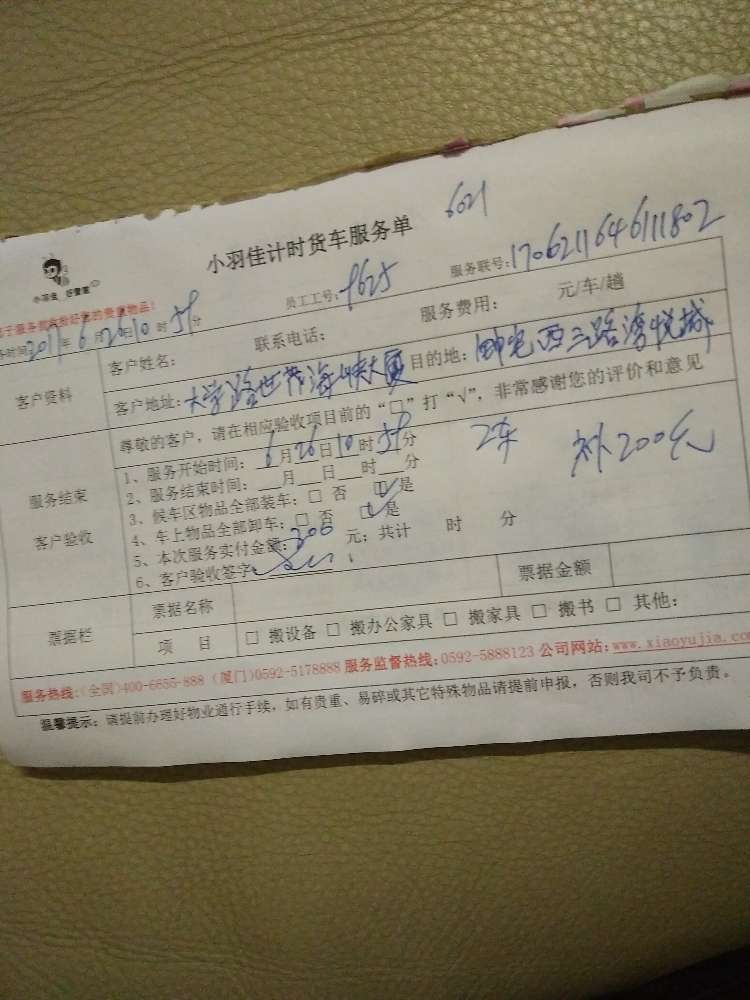 6021
小羽佳计时货车服务单
小羽佳 好管家
员工工号: 9625 服务联号: 170621164611802
务时间2017年6月26日10时58分
客户资料
客户姓名: 联系电话: 服务费用: 元/车/趟
客户地址: 大学路世茂海峡大厦 目的地: 西三路湾悦城
尊敬的客户, 请在相应验收项目前的“□”打“√”, 非常感谢您的评价和意见
服务结束
客户验收
1、服务开始时间: 6月26日10时58分
2车 补200元
2、服务结束时间: __月__日__时__分
3、候车区物品全部装车: □ 否 □√是
4、车上物品全部卸车: □ 否 □√是
5、本次服务实付金额: 300元; 共计 时 分
6、客户验收签字:
票据栏
票据名称 票据金额
项 目 □ 搬设备 □ 搬办公家具 □ 搬家具 □ 搬书 □ 其他:
服务热线:(全国)400-6655-888 (厦门)0592-5178888 服务监督热线: 0592-5888123 公司网站: www.xiaoyujia.co
温馨提示: 请提前办理好物业通行手续, 如有贵重、易碎或其它特殊物品请提前申报, 否则我司不予负责。